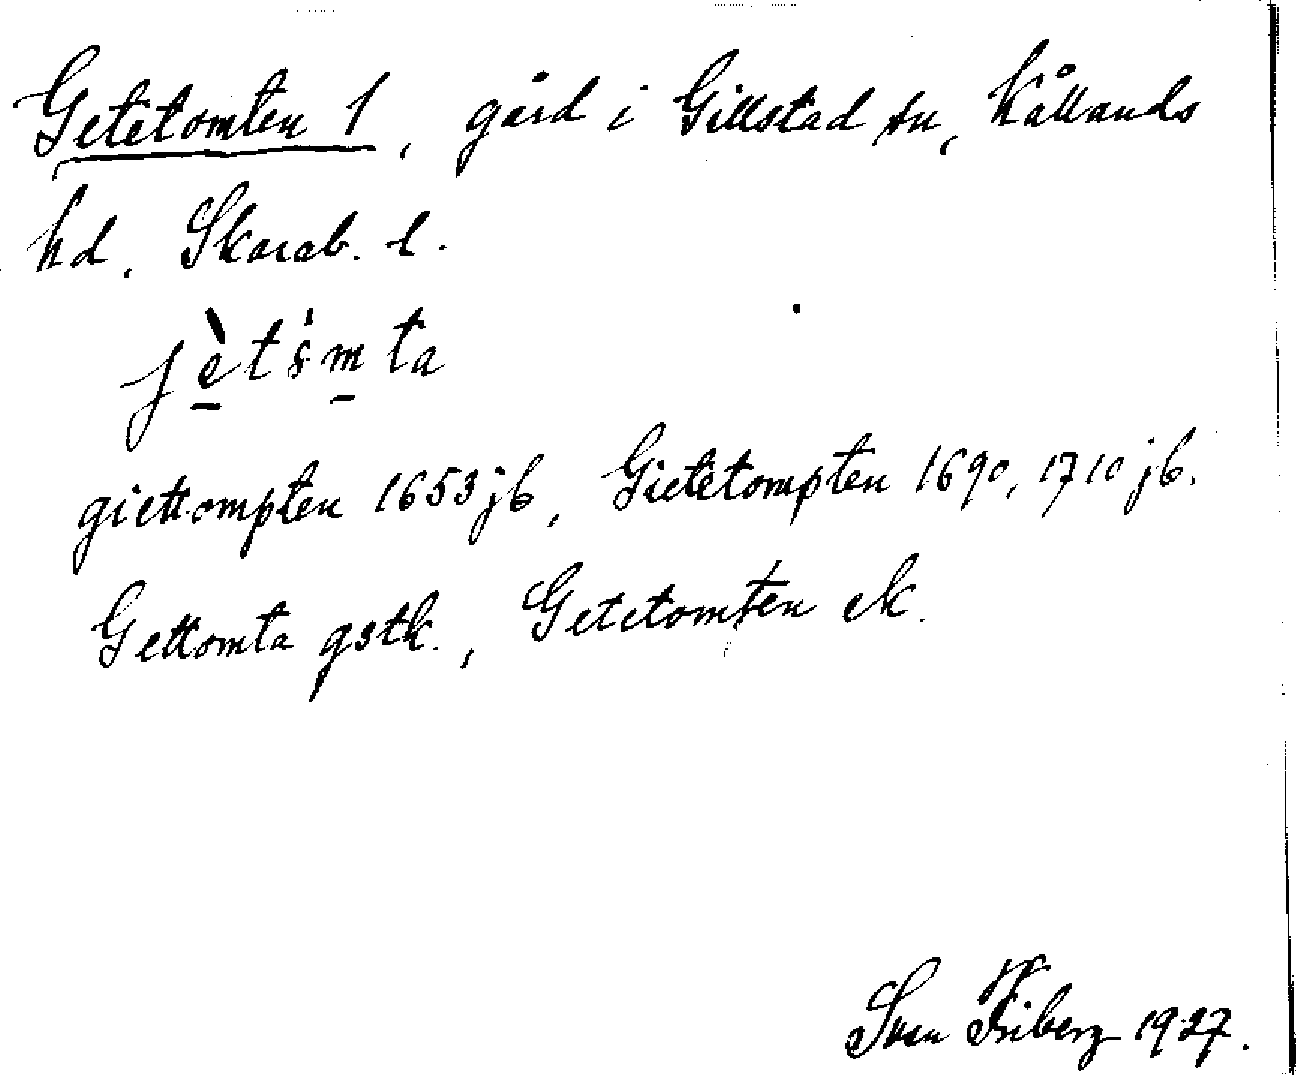 Getetomten 1, gård i Gillstad sn, Kållands
hd, Skarab. l.
giettompten 1653 jb, Gietetompten 1690, 1710 jb.
Gettomta gstk., Getetomten ek.
Sven Friberg 1927.